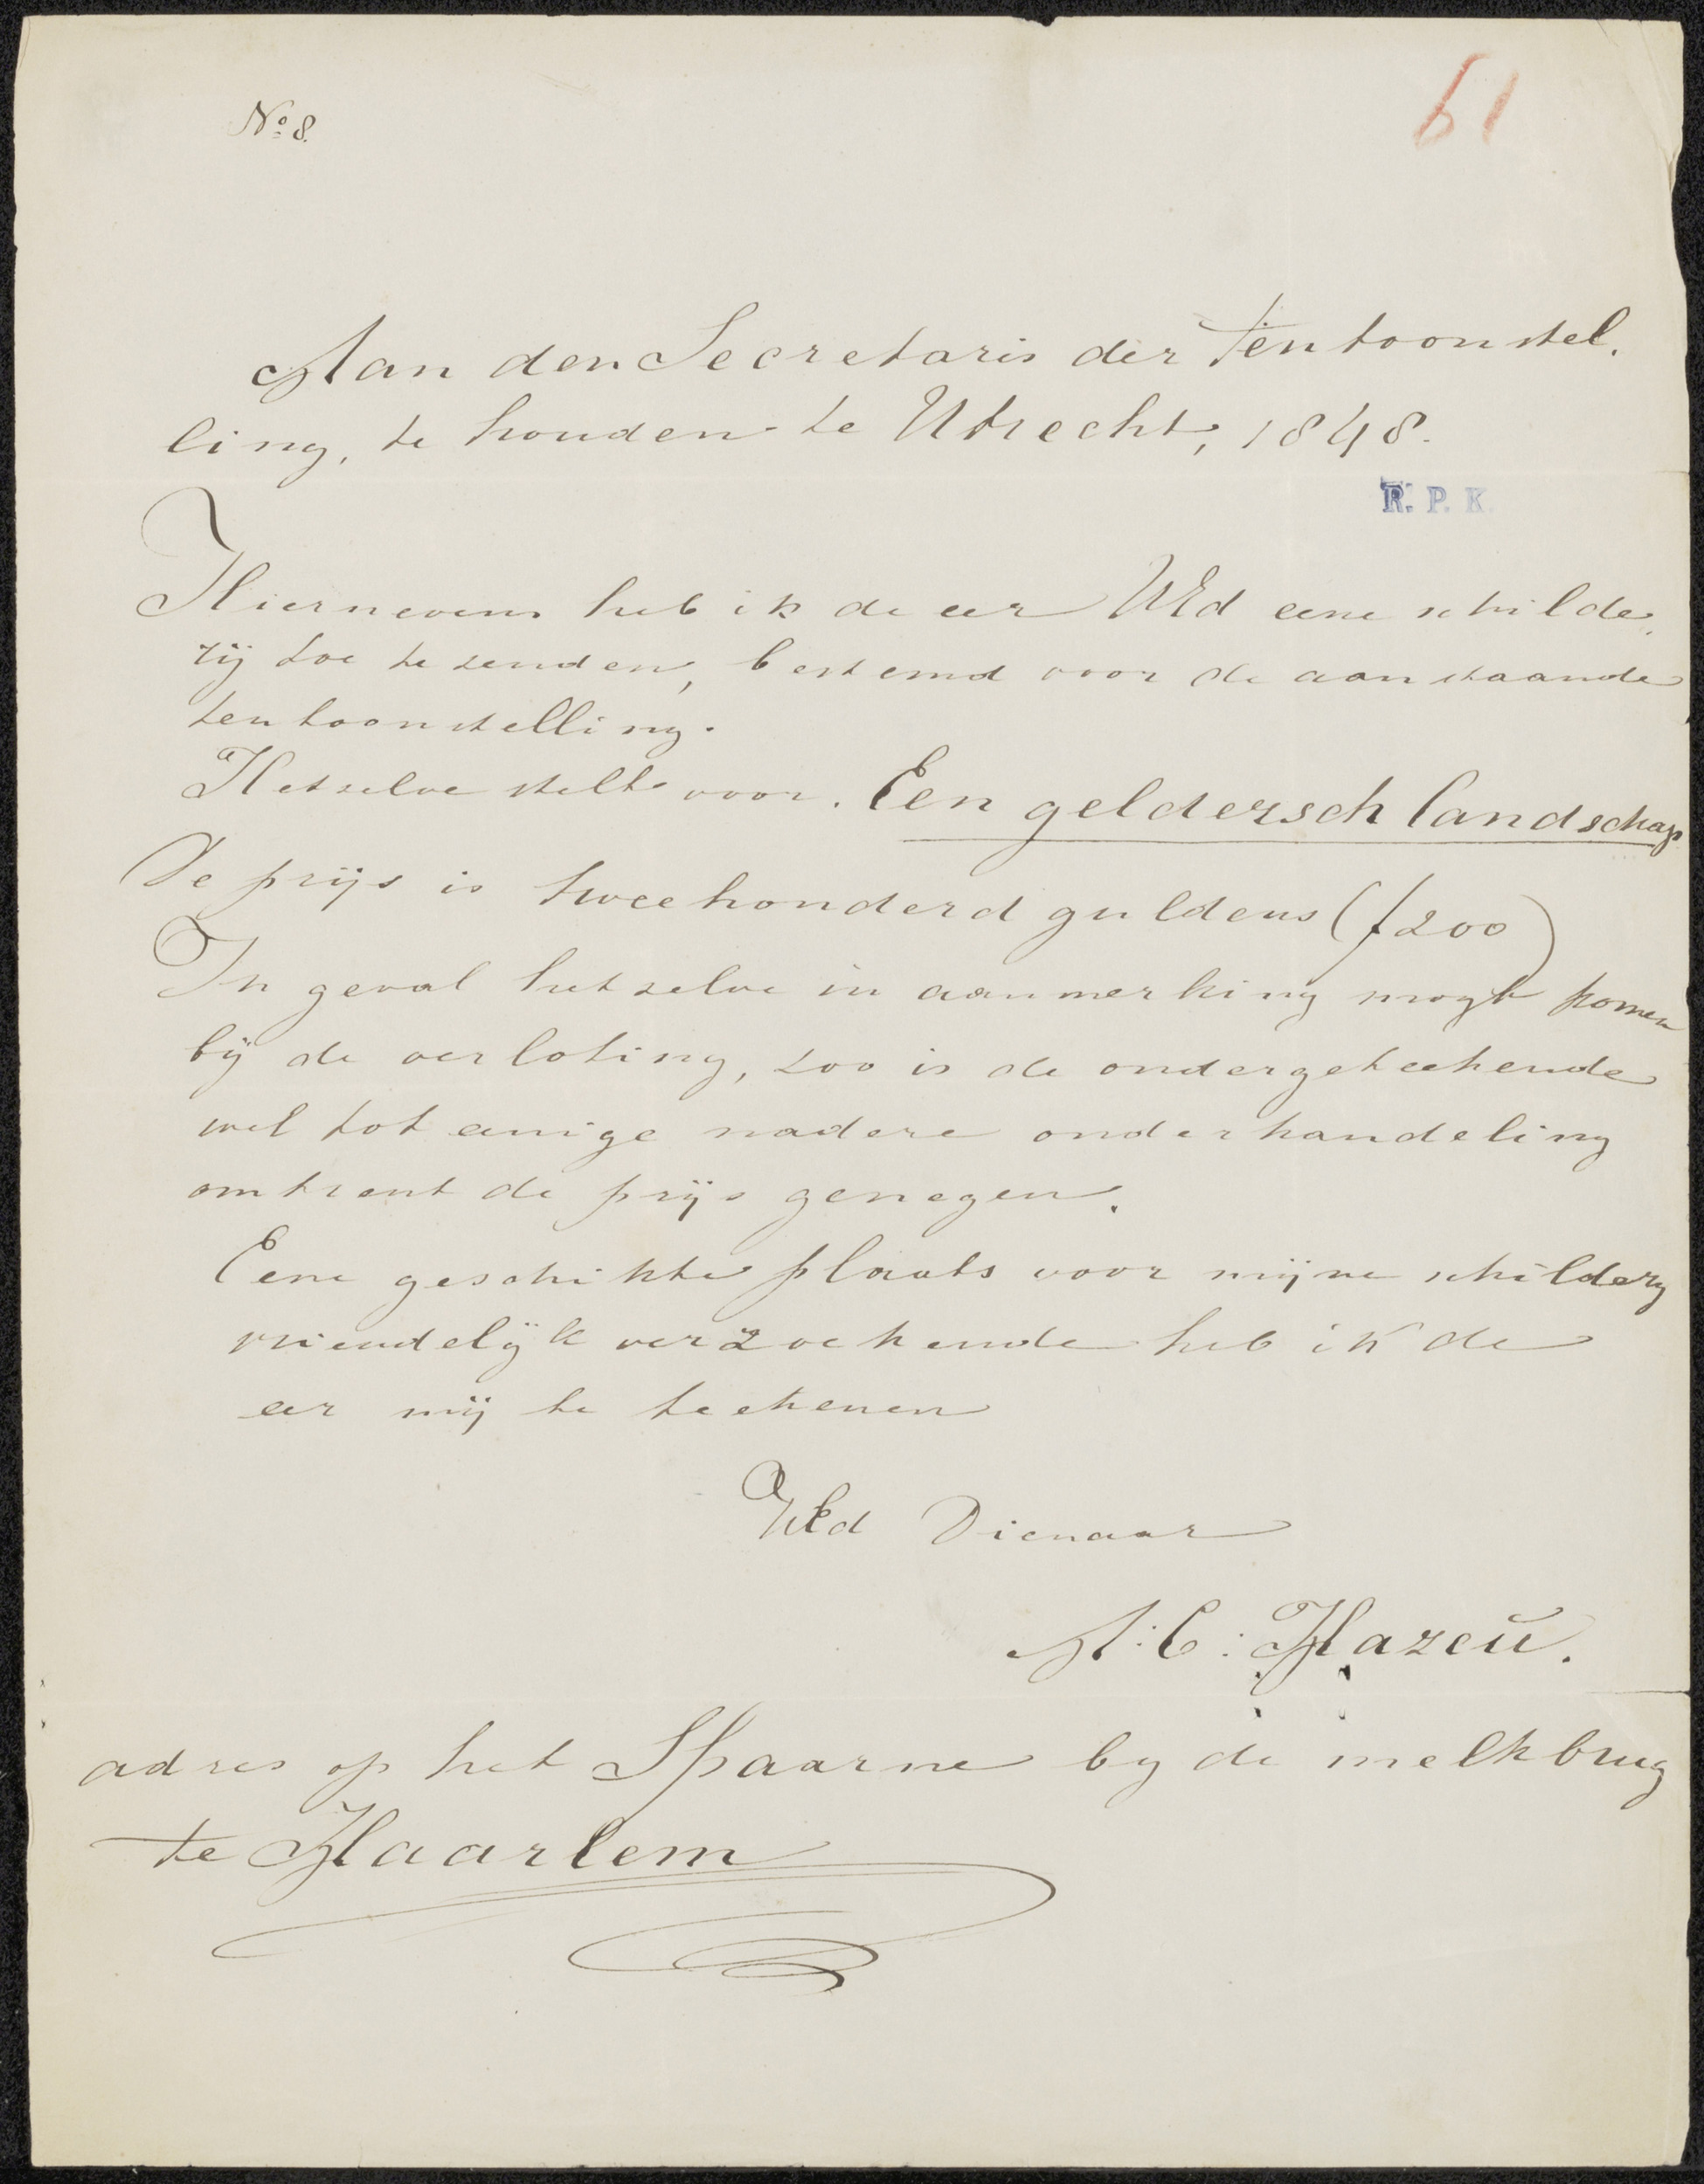 No 8.
61
Aan den Secretaris der Tentoonstel.
ling, te houden te Utrecht, 1848.
R. P. K.
Hiernevens heb ik de eer UEd eene schilde,
rij toe te zenden, bestemd voor de aanstaande
tentoonstelling.
Hetzelve stelt voor. Een geldersch landschap
De prijs is tweehonderd guldens (f200)
In geval hetzelve in aanmerking mogt komen
bij de verloting, zoo is de ondergeteekende
wel tot eenige nadere onderhandeling
omtrent de prijs genegen.
Eene geschikte plaats voor mijne schildery
vriendelijk verzoekende heb ik de
eer mij te teekenen
UEd Dienaar
A: C: Hazeu.
adres op het Spaarne by de melkbrug
te Haarlem